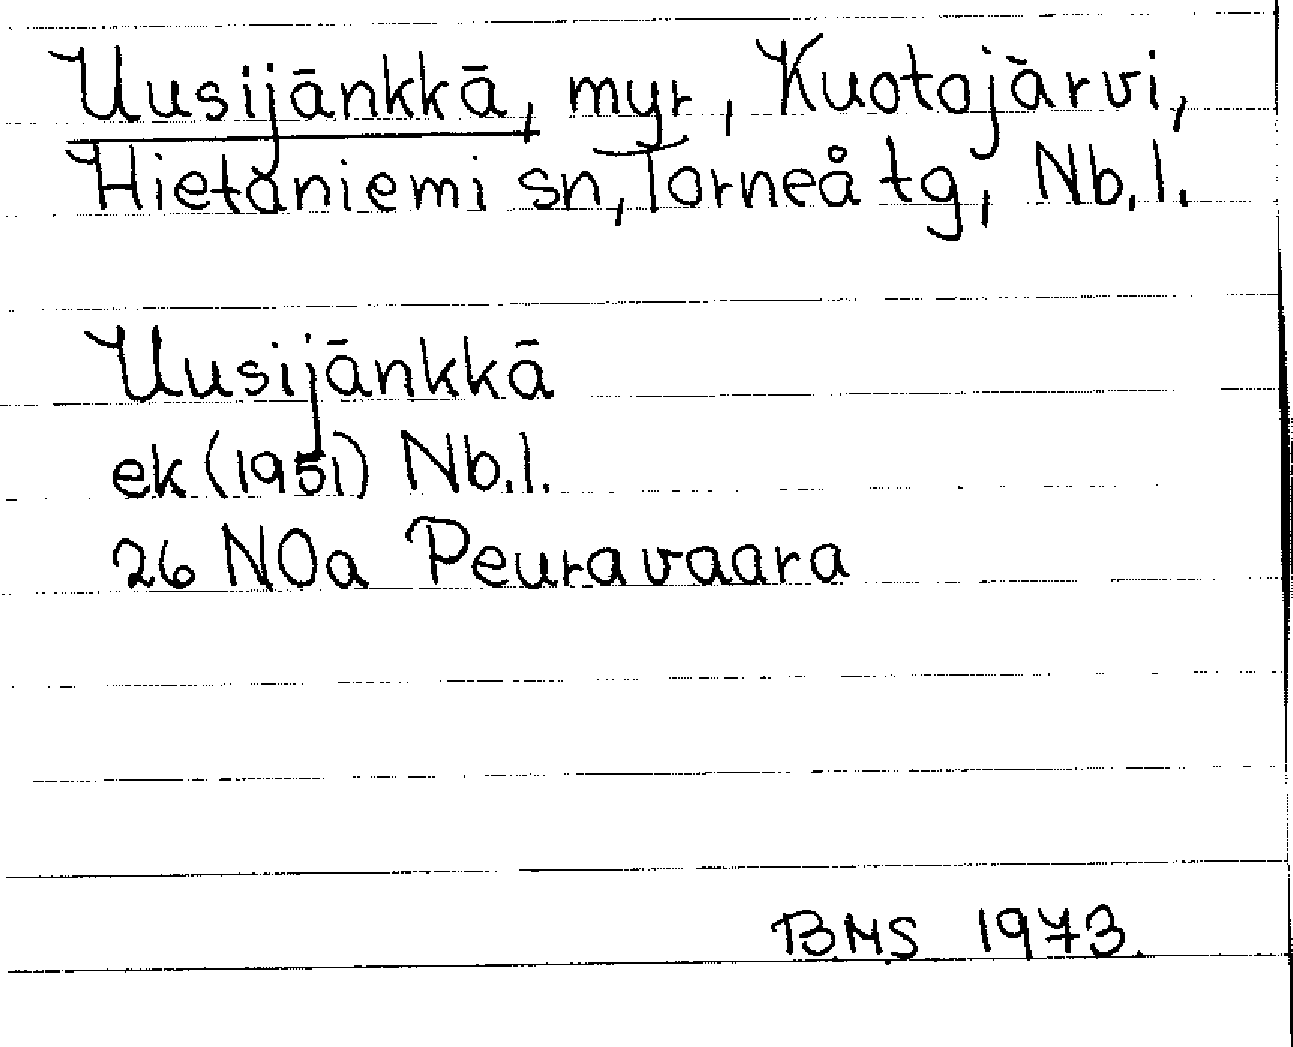 Uusijänkkä, myr, Kuotojärvi,
Hietaniemi sn, Torneå tg, Nb.l.
Uusijänkkä
ek (1951) Nb.l.
26 NOa Peuravaara
BMS 1973.